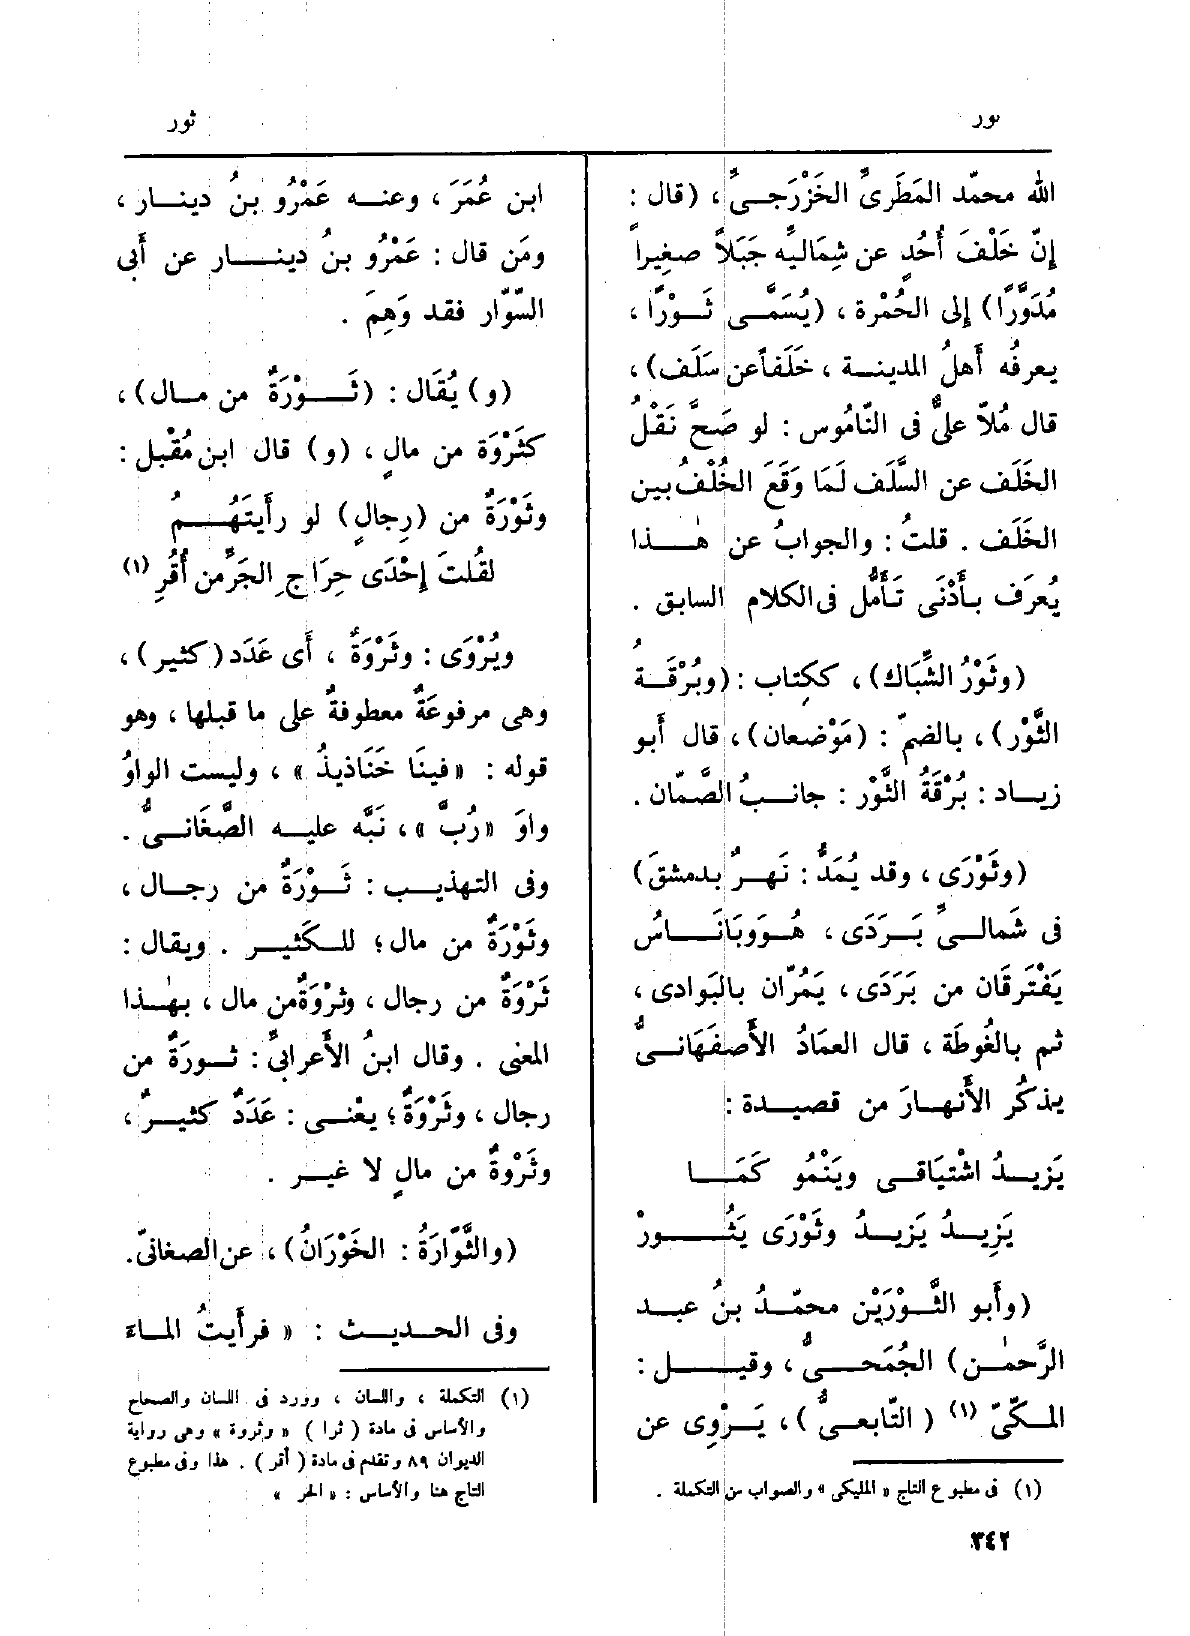 ثور
ثور
الله محمّد المَطَرِىُّ الخَزْرَجِىُّ ، (قال :
إنّ خَلْفَ أُحُدٍ عن شِمَالِيِّه جَبَلاً صغيراً
مُدَوَّرًا) إلى الحُمْرة ، (يُسَمَّى ثَوْرًا ،
يعرفُه أهلُ المدينة ، خَلَفاً عن سَلَف) ،
قال مُلاّ علىٌّ فى النّامُوس : لو صَحَّ نَقْلُ
الخَلَف عن السَّلَف لَمَا وَقَعَ الخُلْفُ بين
الخَلَف . قلتُ : والجوابُ عن هٰذا
يُعرَف بأَدْنَى تَأَمُّل فى الكلام السابق .
(وثَوْرُ الشِّبَاك) ، ككِتاب : (وبُرْقَةُ
الثَّوْر) ، بالضمّ : (مَوْضعان) ، قال أبو
زياد : بُرْقَةُ الثَّوْر : جانبُ الصَّمّان .
(وثَوْرَى ، وقد يُمَدُّ : نَهرٌ بدمشقَ)
فى شَمالىِّ بَرَدَى ، هُو وبَانَاسُ
يَفْتَرِقان من بَرَدَى ، يَمُرّان بالبَوادى ،
ثم بالغُوطَة ، قال العمادُ الأَصفَهَانىُّ
يذكُر الأَنهارَ من قصيدة :
يَزيدُ اشْتيَاقى ويَنْمُو كَمَا
يَزِيدُ يَزيدُ وثَوْرَى يَثُورْ
(وأبو الثَّوْرَيْن محمّدُ بنُ عبد
الرَّحمٰن) الجُمَحىُّ ، وقيل :
المكّىّ (١) ( التّابعىُّ ) ، يَرْوِى عن
(١) فى مطبوع التاج « المليكى » والصواب من التكملة .
ابن عُمَرَ ، وعنه عَمْرُو بنُ دينار ،
ومَن قال : عَمْرُو بنُ دينار عن أَبى
السَّوّار فقد وَهِمَ .
(و) يُقَال : (ثَوْرَةٌ من مال) ،
كثَرْوَة من مالٍ ، (و) قال ابن مُقْبل :
وثَوْرَةٌ من (رِجالٍ) لو رأَيتَهُم
لقُلتَ إحْدَى حِرَاجِ الجَرِّ من أُقُرِ (١)
ويُرْوَى : وثَرْوَةٌ ، أَى عَدَد (كثير) ،
وهى مرفوعَةٌ معطوفةٌ على ما قبلها ، وهو
قوله : « فينَا خَنَاذيذُ » ، وليست الواوُ
واوَ « رُبَّ » ، نَبَّه عليه الصَّغَانىُّ .
وفى التهذيب : ثَوْرَةٌ من رجال ،
وثَوْرَةٌ من مال ؛ للكَثير . ويقال :
ثَرْوَةٌ من رجال ، وثَرْوَةٌ من مال ، بهٰذا
المعنى . وقال ابنُ الأَعرابىِّ : ثورةٌ من
رجال ، وثَرْوَةٌ ؛ يعْنى : عَدَدٌ كثيرٌ ،
وثَرْوةٌ من مالٍ لا غير .
(والثَّوّارَةُ : الخَوْرَانُ) ، عن الصغانىّ.
وفى الحديث : « فرأَيتُ الماءَ
(١) التكملة ، واللسان ، وورد فى اللسان والصحاح
والأساس فى مادة ( ثرا ) « وثروة » وهى رواية
الديوان ٨٩ وتقدم فى مادة ( أقر ) . هذا وفى مطبوع
التاج هنا والأساس : « الحر »
٣٤٢